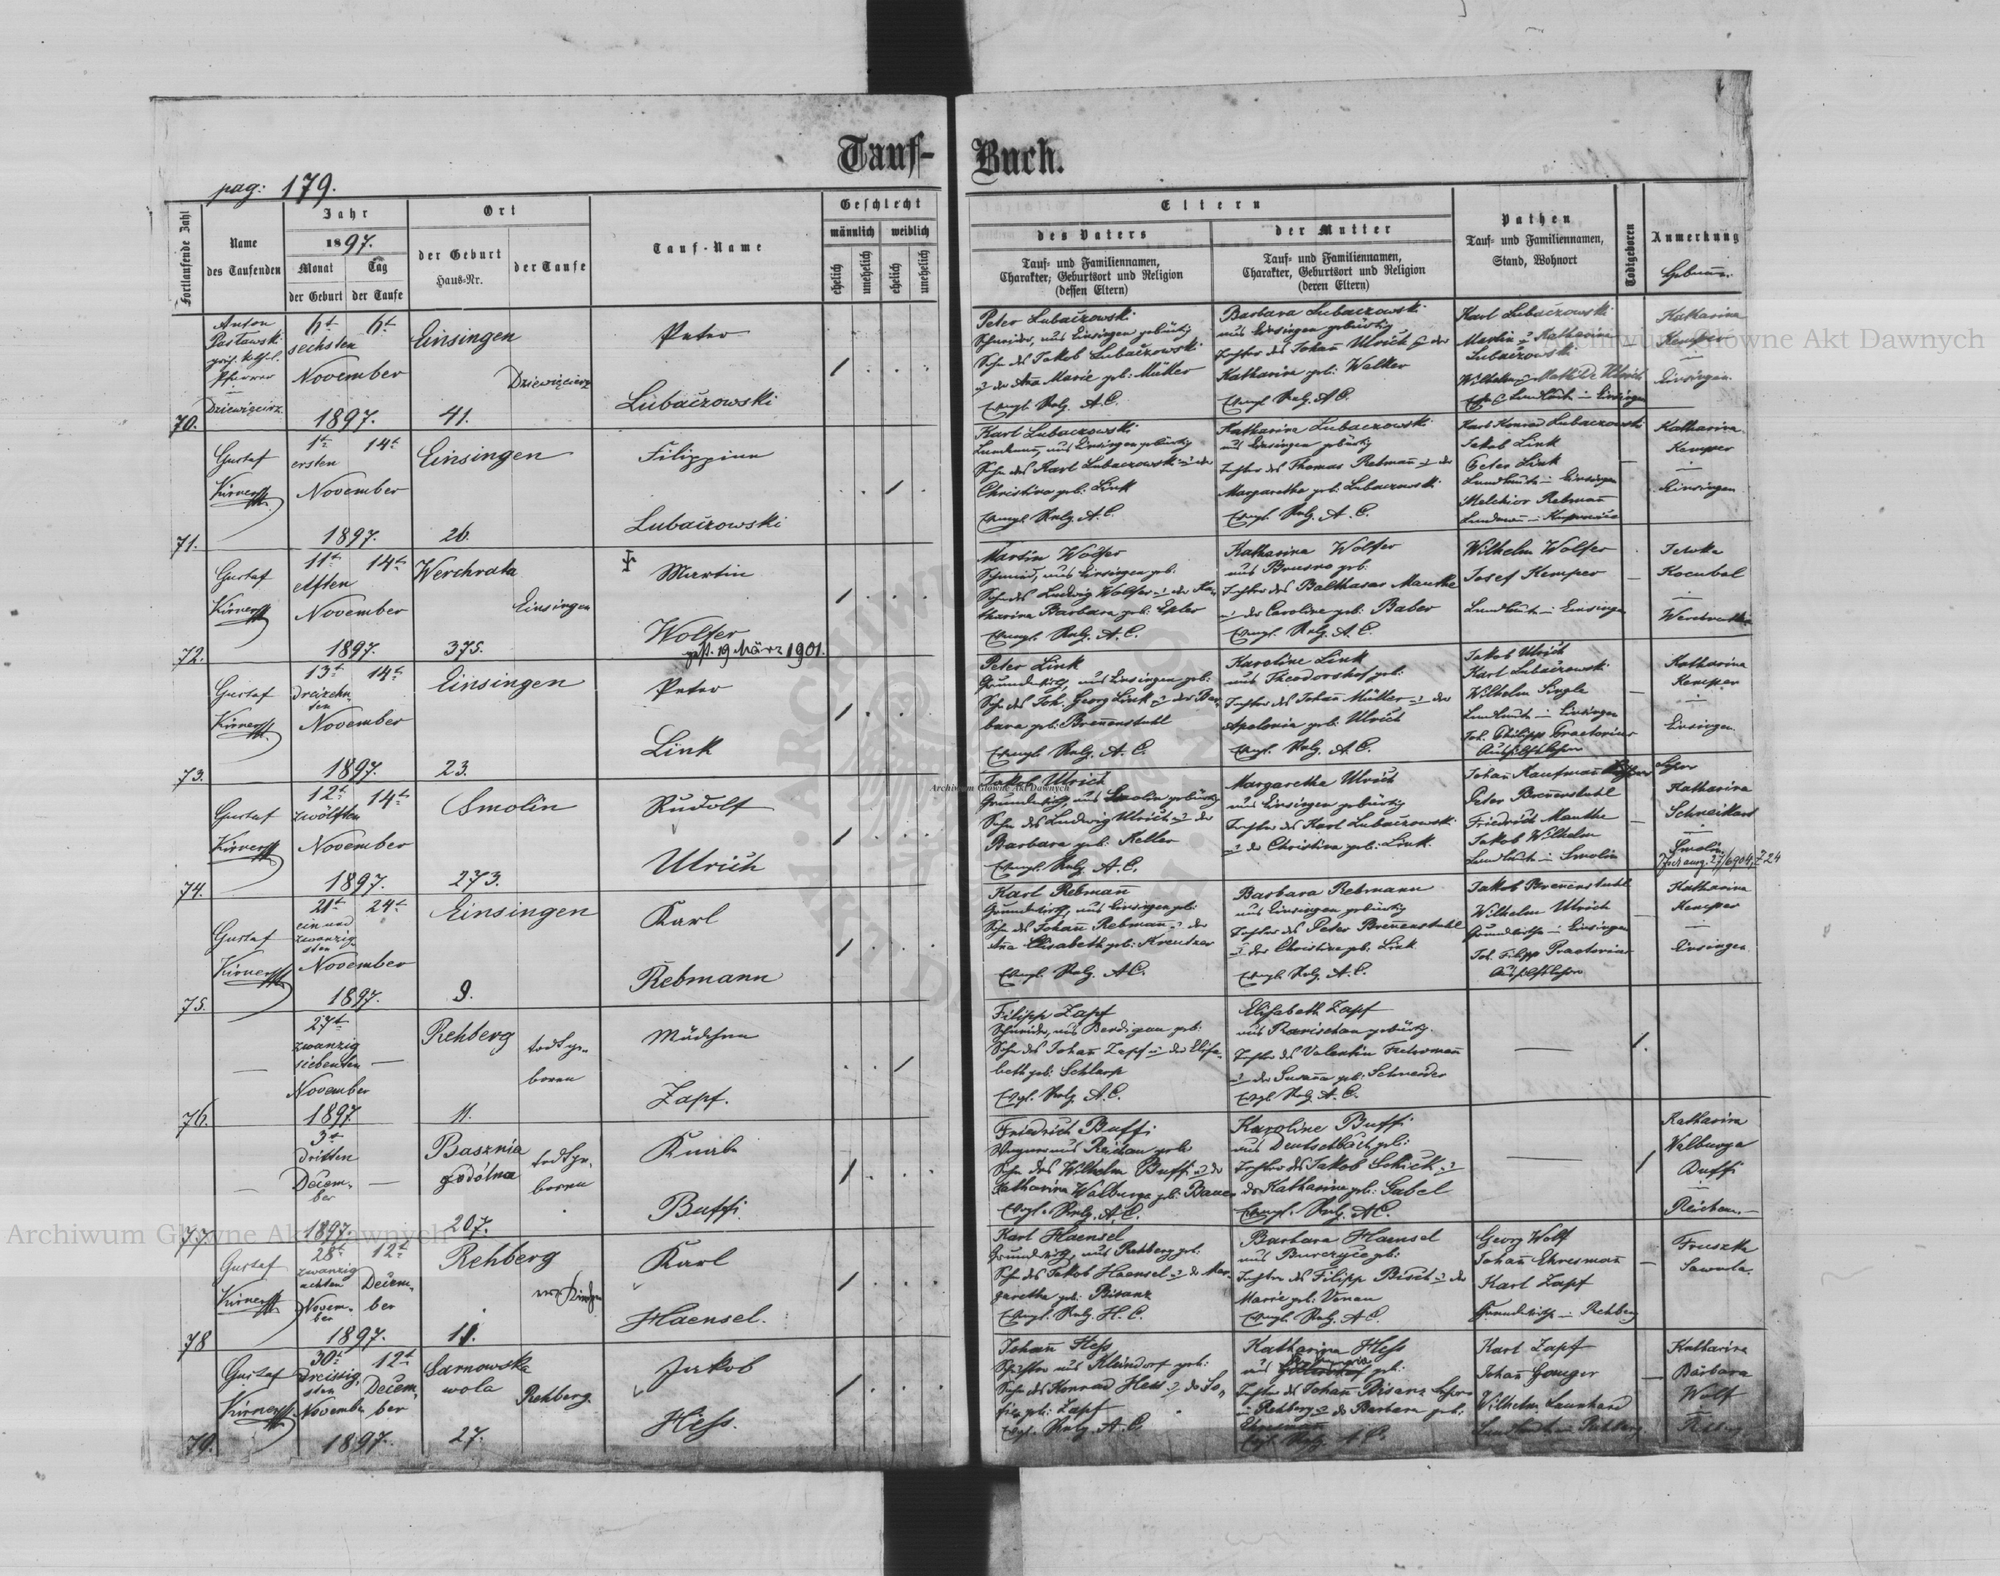 Tauf-Buch.
pag: 179.
Fortlaufende Zahl
Name
des Taufenden
Jahr
1897.
Monat Tag
der Geburt der Taufe
Ort
der Geburt
Haus-Nr.
der Taufe
Tauf-Name
Geschlecht
männlich weiblich
ehelich unehelich ehelich unehelich
Eltern
des Vaters
Tauf- und Familiennamen,
Charakter, Geburtsort und Religion
(dessen Eltern)
der Mutter
Tauf- und Familiennamen,
Charakter, Geburtsort und Religion
(deren Eltern)
Pathen
Tauf- und Familiennamen,
Stand, Wohnort
Todtgeboren
Anmerkung
70.
Anton
Dziewięcierz
6t 6t
sechsten
November
1897.
Einsingen
41.
Dziewięcierz
Peter
Lubaczowski
Peter Lubaczowski
Schneider, aus Einsingen gebürtig
Sohn des Jakob Lubaczowski
u der Ana Marie geb: Müller
Evngl. Relg. A.C.
Barbara Lubaczowski
aus Einsingen gebürtig
Tochter des Johann Ulrich u der
Katharina geb: Walter
Evngl. Relg. A.C.
Karl Lubaczowski
Martin u Katharina
Lubaczowski
Katharina
Kemper
Einsingen
71.
Gustaf
1t 14t
ersten
November
1897.
Einsingen
26.
Filippine
Lubaczowski
Karl Lubaczowski
Landmann, aus Einsingen gebürtig
Sohn des Karl Lubaczowski u der
Christina geb: Link
Evngl. Relg. A.C.
Katharina Lubaczowski
aus Einsingen gebürtig
Tochter des Thomas Rebmann u der
Margaretha geb: Lubaczowski
Evngl. Relg. A.C.
Karl Konrad Lubaczowski
Jakob Link
Peter Link
Landleute in Einsingen
Melchior Rebmann
Katharina
Kemper
Einsingen
72.
Gustaf
11t 14t
elften
November
1897.
Werchrata
375.
Einsingen
Martin
Wolfer
gest. 19 März 1901.
Martin Wolfer
Schmied, aus Einsingen geb:
Sohn des Ludwig Wolfer u der Ka-
tharina Barbara geb: Exler
Evngl. Relg. A.C.
Katharina Wolfer
aus Brusno geb:
Tochter des Balthasar Manthe
u der Caroline geb: Baber
Evngl. Relg. A.C.
Wilhelm Wolfer
Josef Kemper
Landleute in Einsingen
Tewka
Kocubal
Werchrata
73.
Gustaf
13t 14t
dreizehn
ten
November
1897.
Einsingen
23.
Peter
Link
Peter Link
Grundwirth, aus Einsingen geb:
Sohn des Joh. Georg Link u der Bar-
bara geb: Brennenstuhl
Evngl. Relg. A.C.
Karoline Link
aus Theodorshof geb:
Tochter des Johann Müller u der
Apolonia geb: Ulrich
Evngl. Relg. A.C.
Jakob Ulrich
Karl Lubaczowski
Wilhelm Single
Landleute in Einsingen
Joh. Philipp Praetorius
Aushilfslehrer
Katharina
Kemper
Einsingen
74.
Gustaf
12t 14t
zwölften
November
1897.
Smolin
273.
Rudolf
Ulrich
Jakob Ulrich
Grundwirth aus Smolin gebürtig
Sohn des Ludwig Ulrich u der
Barbara geb: Keller
Evngl. Relg. A.C.
Margaretha Ulrich
aus Einsingen gebürtig
Tochter des Karl Lubaczowski
u der Christina geb: Link.
Evngl. Relg. A.C.
Johann Kaufmann
Peter Brennenstuhl
Friedrich Manthe
Jakob Wilhelm
Landleute in Smolin
Katharina
Schneikart
Smolin
75.
Gustaf
21t 24t
ein und
zwanzig
sten
November
1897.
Einsingen
9.
Karl
Rebmann
Karl Rebmann
Grundwirth, aus Einsingen geb:
Sohn des Johann Rebmann u der
Ana Elisabeth geb: Kreutzer
Evngl. Relg. A.C.
Barbara Rebmann
aus Einsingen gebürtig
Tochter des Peter Brennenstuhl
u der Christina geb: Link
Evngl. Relg. A.C.
Jakob Brennenstuhl
Wilhelm Ulrich
Grundwirthe in Einsingen
Joh. Filipp Praetorius
Aushilfslehrer
Katharina
Kemper
Einsingen
76.
27t
zwanzig
siebenten
November
1897
Rehberg
11.
todtge-
boren
Mädchen
Zapf.
Filipp Zapf
Sohn des Johann Zapf u der Elisa-
beth geb: Schlarp
Evgl. Relg. A.C.
Elisabeth Zapf
Tochter des Valentin
u der Susanna geb: Schneider
Evgl. Relg. A.C.
77.
3t
dritten
Decem-
ber
1897.
Basznia
dolna
207.
todtge-
boren
Knabe
Buffi
Friedrich Buffi
Sohn des Wilhelm Buffi u der
Katharina Walburga geb: Bauer
Evngl. Relg. A.C.
Karoline Buffi
aus Deutschbach geb:
Tochter des Jakob Schick u
der Katharina geb: Gabel
Evngl. Relg. A.C.
Katharina
Walburga
Buffi
Reichau
78
Gustaf
28t 12t
zwanzig
achten
Novem-
ber
Decem-
ber
1897.
Rehberg
11.
Karl
Haensel.
Karl Haensel
Grundwirth, aus Rehberg geb:
Sohn des Jakob Haensel u der Mar-
garetha geb: Bisanz
Evngl. Relg. H.C.
Barbara Haensel
aus Burczyce geb:
Tochter des Filipp Bisch u der
Marie geb:
Evngl. Relg. A.C.
Georg Wolf
Johann Ehresmann
Karl Zapf
Grundwirthe in Rehberg
Fruszka
Sawula
79.
Gustaf
30t 12t
Dreissig-
sten
November
Decem-
ber
1897.
Sarnowska
wola
27.
Rehberg
Jakob
Hess.
Johann Hess
aus Kleindorf geb:
Sohn des Konrad Hess u der So-
fia geb: Zapf
Evgl. Relg. A.C.
Katharina Hess
Tochter des Johann Bisanz
in Rehberg u der Barbara geb:
Ehresmann
Evgl. Relg. A.C.
Karl Zapf
Johann Gauger
Wilhelm Launhard
Landleute in Rehberg
Katharina
Barbara
Wolf
Archiwum Główne Akt Dawnych